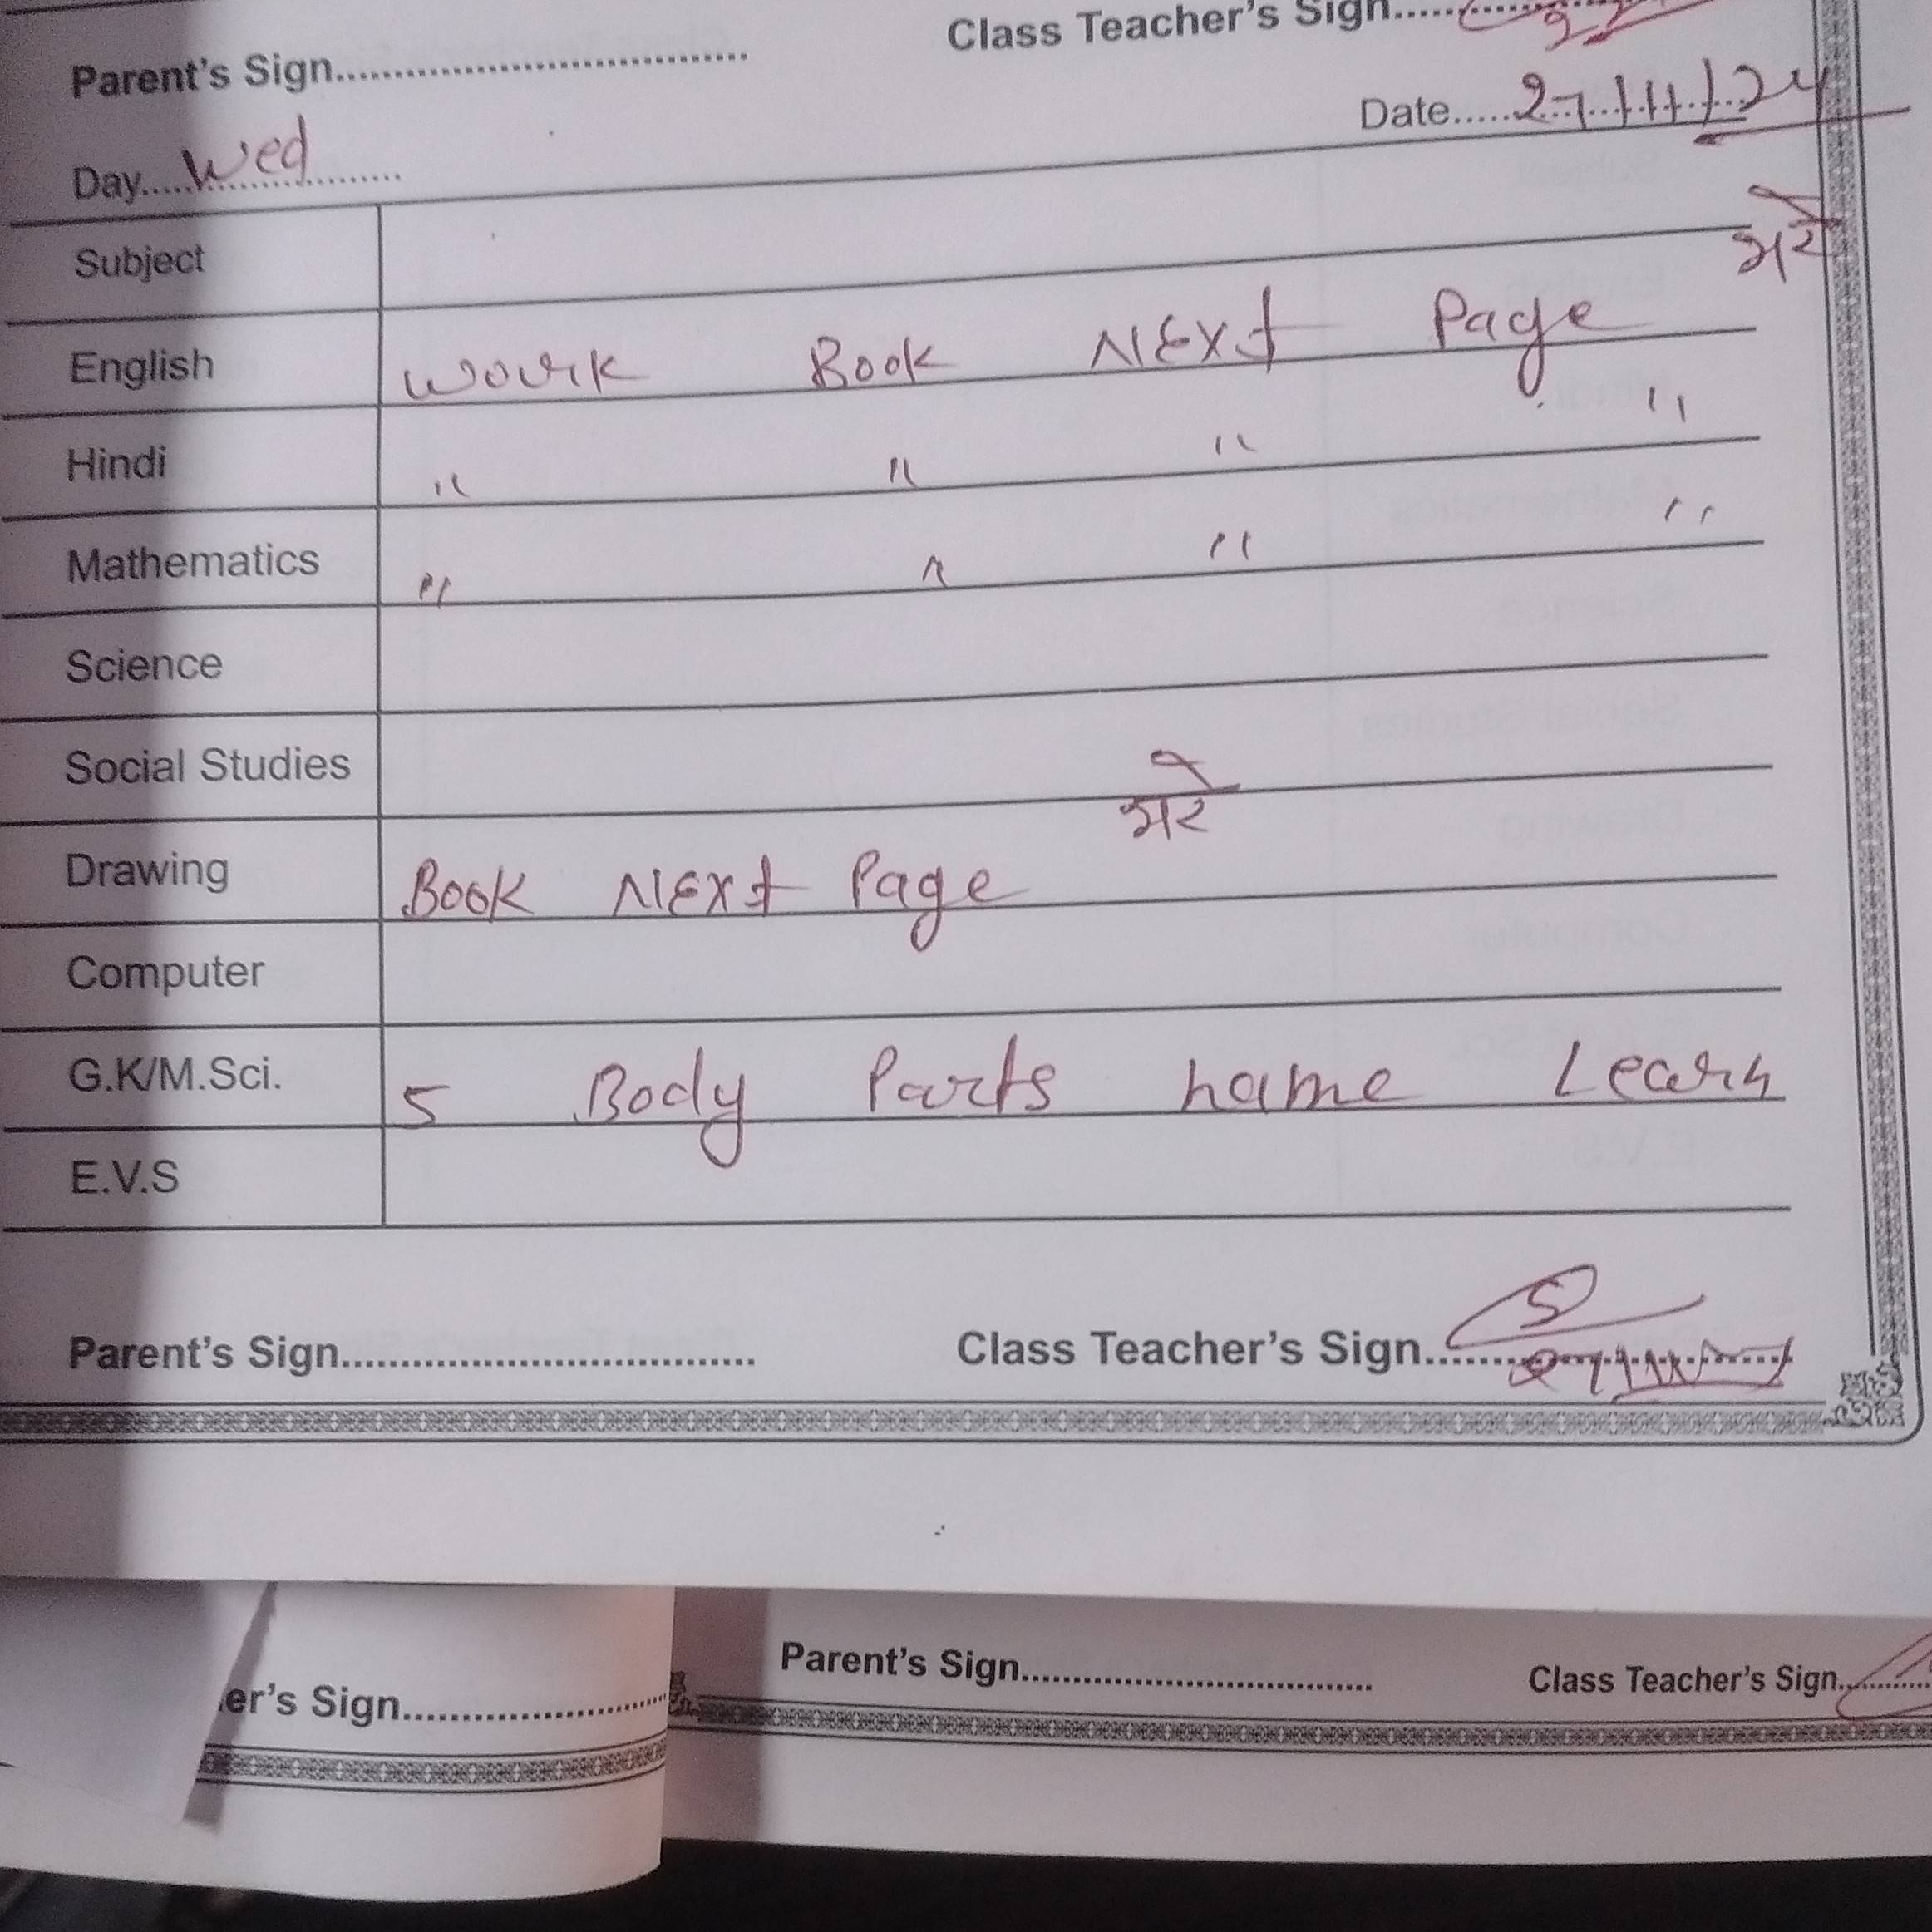 Class Teacher's Sign......
Parent's Sign....................................
Date.....27/11/24
Day.....Wed....................
Subject
भरे
English Work Book NExt Page
Hindi " " " "
Mathematics " " " "
Science
Social Studies
भरे
Drawing Book NExt Page
Computer
G.K/M.Sci. 5 Body Parts name Learn
E.V.S
Parent's Sign.................................... Class Teacher's Sign...............................
Parent's Sign.................................... Class Teacher's Sign............
er's Sign........................